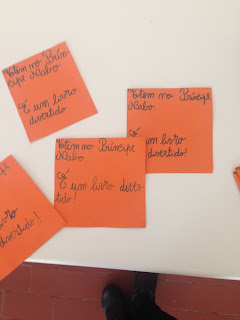 Votem no Prín-
cipe Nabo
É um livro
divertido
Votem no Príncipe
Nabo
É um livro
divertido!
Votem no Príncipe
Nabo.
É um livro diver-
tido!
livro
divertido!